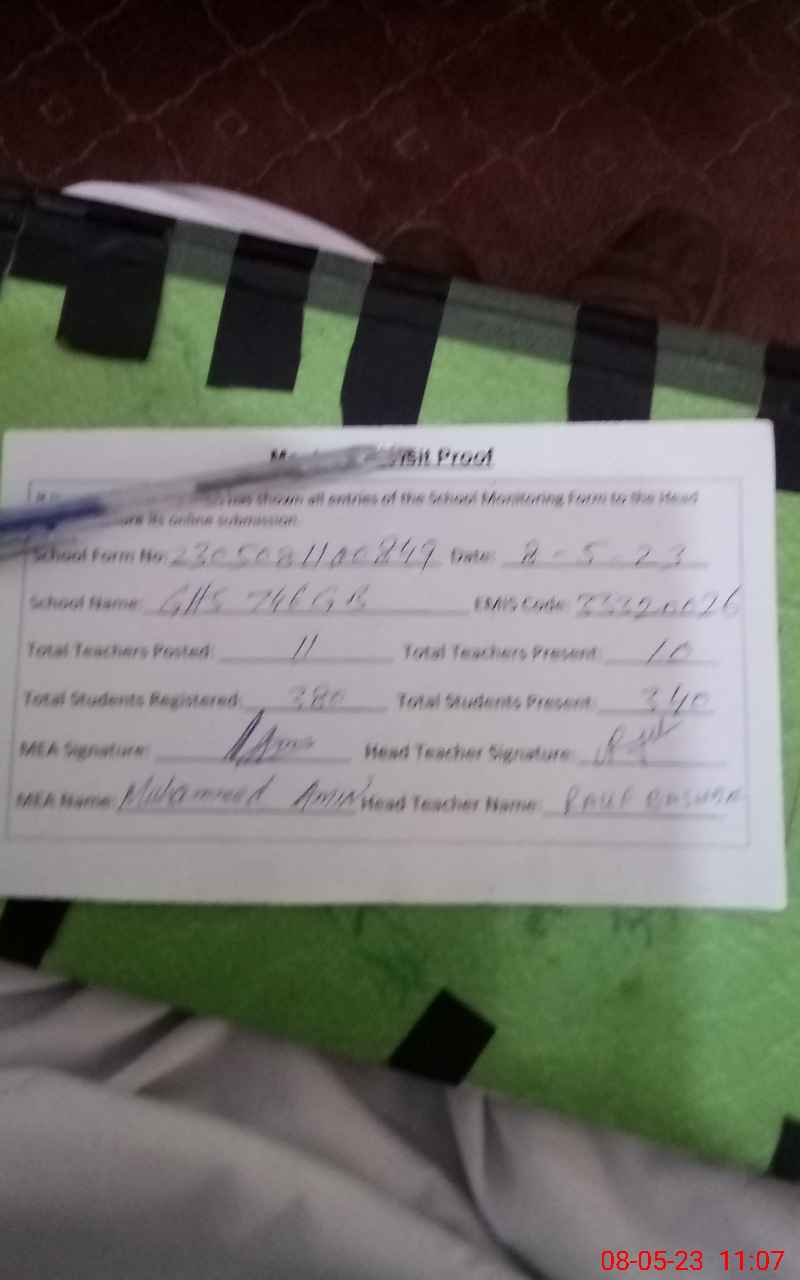 Visit Proof
has shown all entries of the School Monitoring Form to the Head
its online submission.
School Form No: 2305081100849 Date: 8-5-23
School Name: GHS 746 GB EMIS Code:
Total Teachers Posted: 11 Total Teachers Present: 10
Total Students Registered: 380 Total Students Present: 340
MEA Signature: Head Teacher Signature:
MEA Name: Muhammad Amin Head Teacher Name: Rauf
08-05-23 11:07